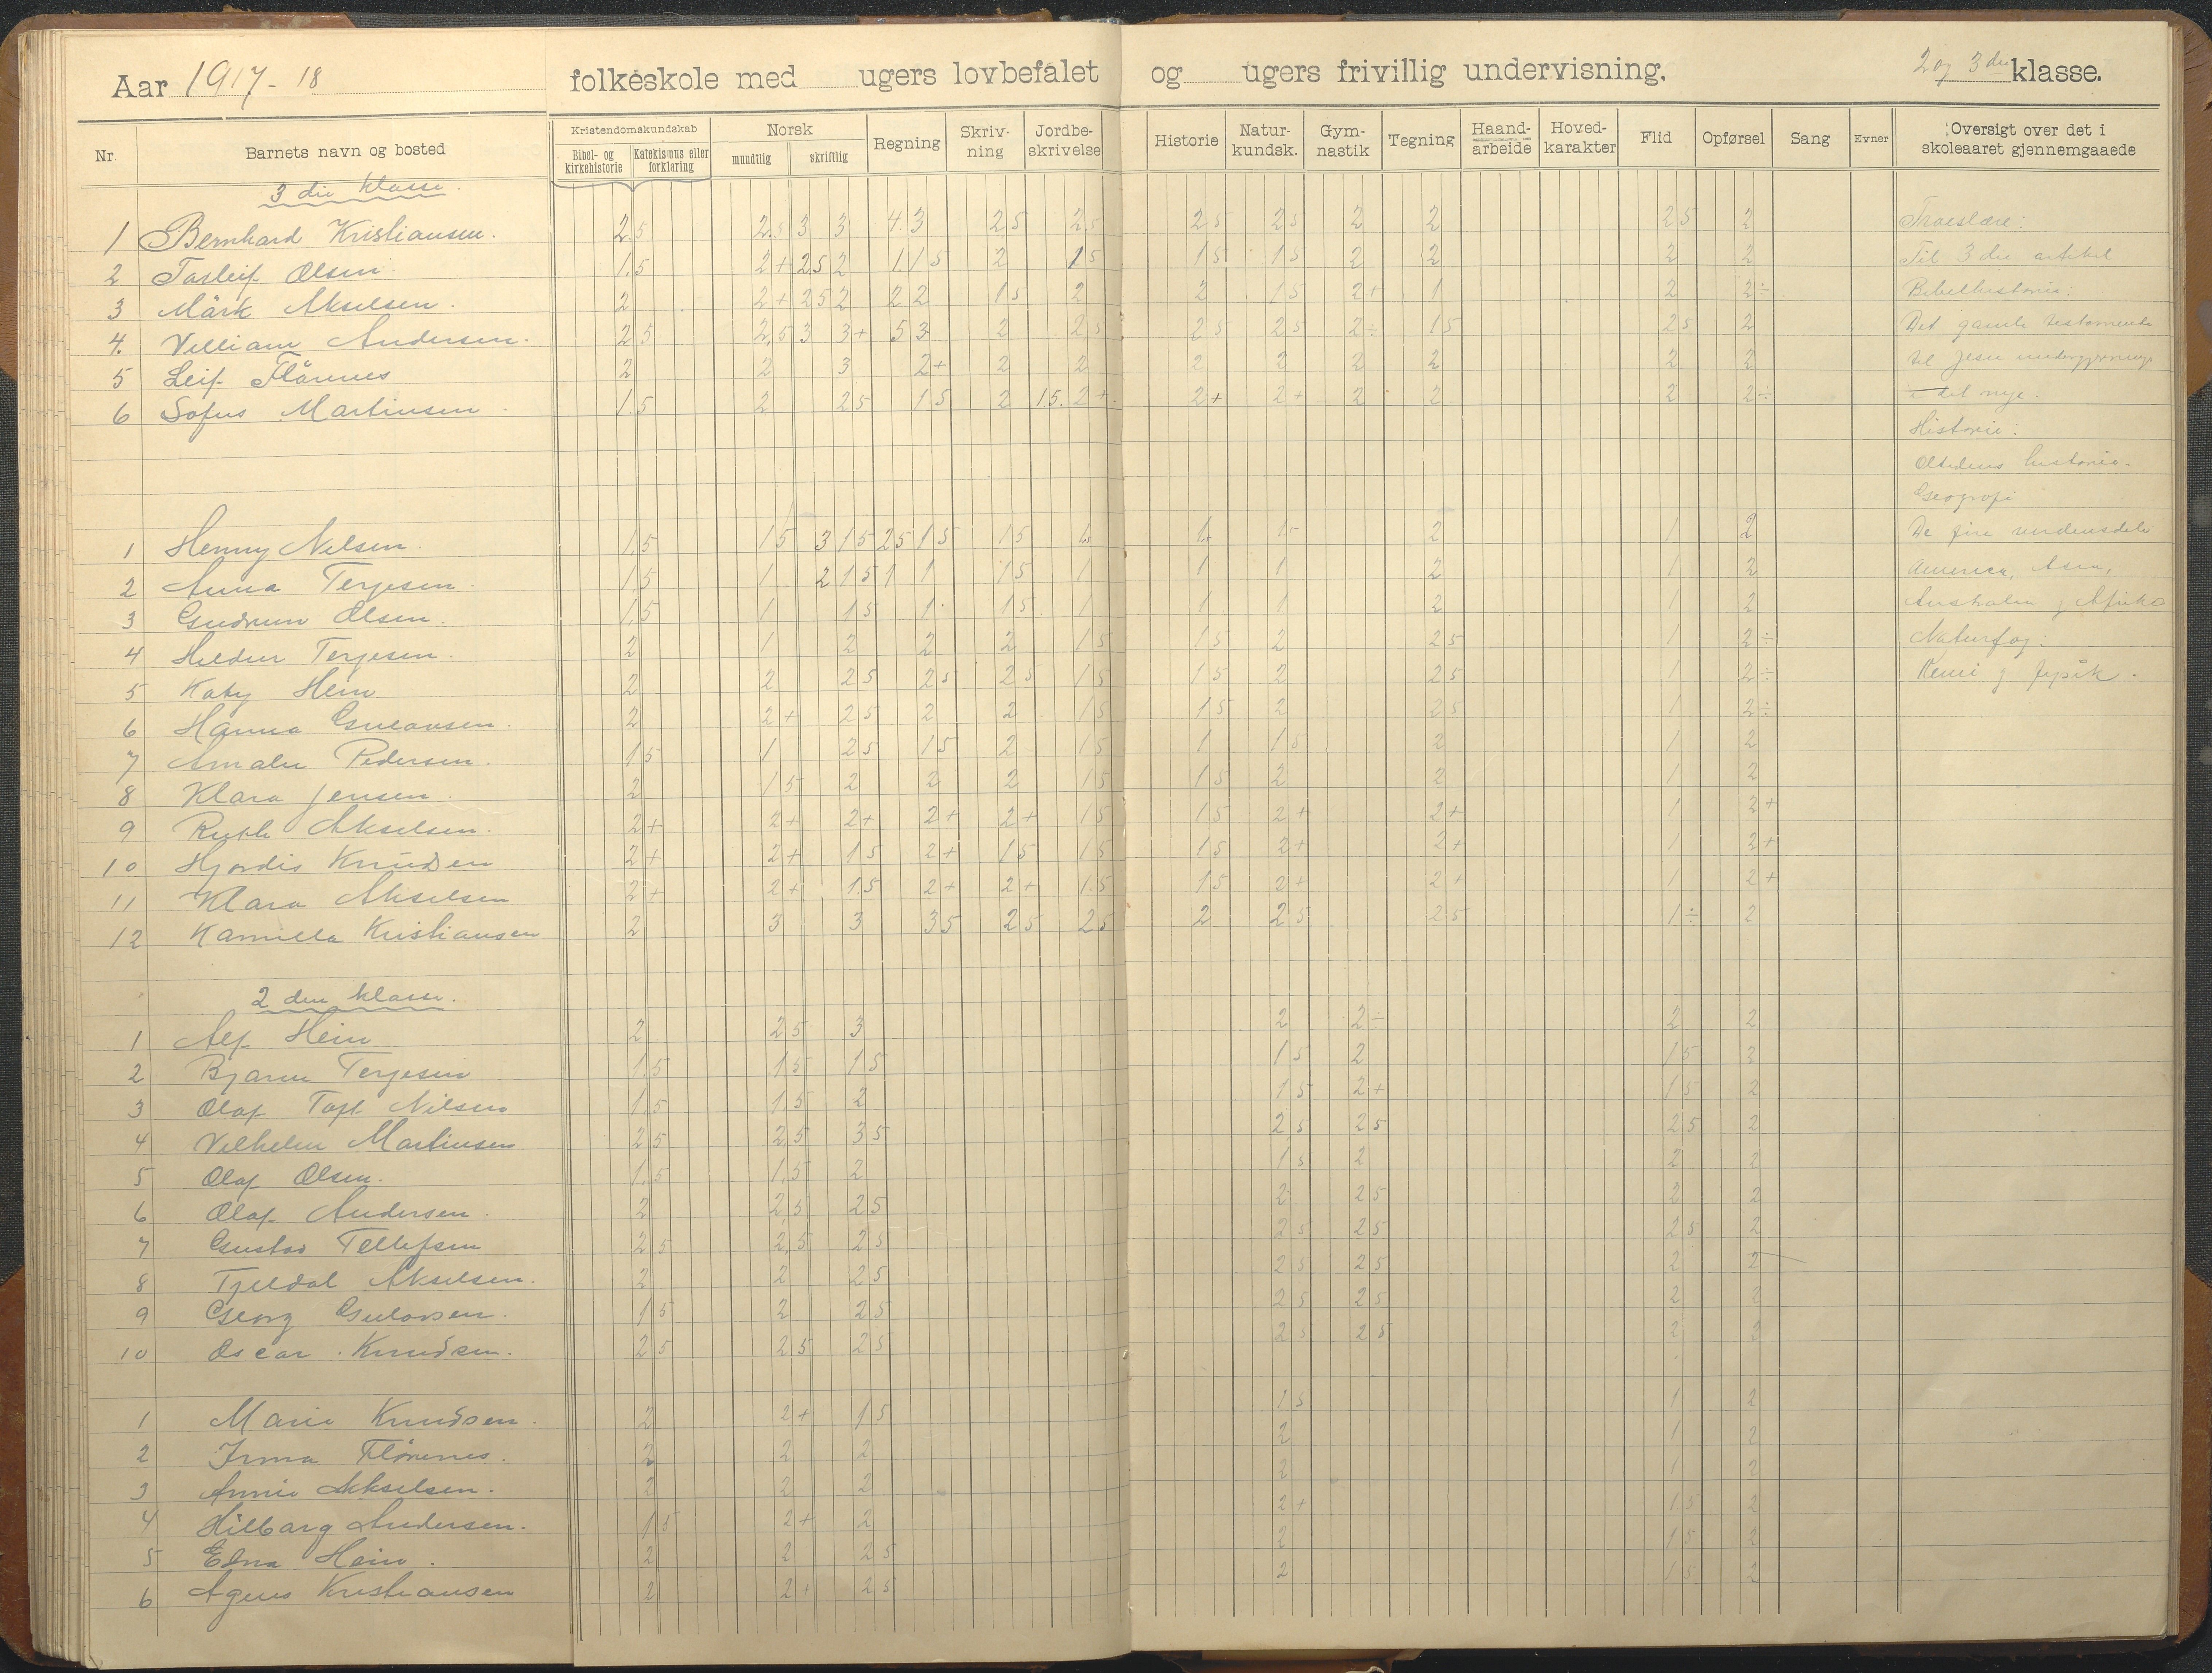 Aar 1917-18 folkeskole med ugers lovbefalet og ugers frivillig undervisning. 2 og 3die klasse.
Nr. Barnets navn og bosted Kristendomskundskab Norsk Regning Skriv-ning Jordbe-skrivelse Historie Natur-kundsk. Gym-nastik Tegning Haand-arbeide Hoved-karakter Flid Opførsel Sang Evner Oversigt over det i skoleaaret gjennemgaaede
Bibel- og kirkehistorie Katekismus eller forklaring mundtlig skriftlig
3 die klasse.
1 Bernhard Kristiansen. 2.5 2.5 3 3 4.3 25 2.5 25 25 2 2 25 2 Troeslære:
2 Tarleif Olsen 1.5 2+ 25 2 1.15 2 15 15 15 2 2 2 2 Til 3die artikel
3 Mårk Akselsen. 2 2+ 25 2 22 15 2 2 15 2+ 1 2 2÷ Bibelhistorie:
4. Villiam Andersen. 25 2,5 3 3+ 53 2 25 25 25 2÷ 15 25 2 Det gamle testamente
5 Leif Flånnes 2 2 3 2+ 2 2 2 2 2 2 2 2 til Jesu undergjerninger
6 Sofus Martinsen. 1.5 2 25 15 2 15. 2+. 2+ 2+ 2 2 2 2÷ i det nye.
Historie:
Oltidens historie.
Geografi
1 Henny Nilsen. 1,5 15 3 15 25 15 15 1. 1. 15 2 1 2 De fire verdensdele
2 Anna Terjesen. 1,5 1 2 15 1 1 15 1 1 1 2 1 2 America, Asia,
3 Gudrun Olsen. 1,5 1 15 1 15 1 1 1 2 1 2 Australia og Afrika
4 Hildur Terjesen. 2 1 2 2 2 15 15 2 25 1 2÷ Naturfag:
5 Katy Hein 2 2 25 25 25 15 15 2 25 1 2÷ Kemi og fysik.
6 Hanna Gulovsen. 2 2+ 25 2 2 15 15 2 25 1 2÷
7 Amalie Pedersen. 15 1 25 15 2 15 1 15 2 1 2
8 Klara Jensen. 2 15 2 2 2 15 15 2 2 1 2
9 Ruth Akselsen. 2+ 2+ 2+ 2+ 2+ 15 15 2+ 2+ 1 2+
10 Hjordis Knudsen 2+ 2+ 15 2+ 15 15 15 2+ 2+ 1 2+
11 Klara Akselsen 2+ 2+ 1.5 2+ 2+ 1.5 15 2+ 2+ 1 2+
12 Kamilla Kristiansen 2 3 3 35 25 25 2 25 25 1÷ 2
2 den klasse.
1 Alf Hein 2 25 3 2 2÷ 2 2
2 Bjarne Terjesen 1.5 15 15 15 2 15 2
3 Olaf Toft Nilsen 1,5 1,5 2 15 2+ 15 2
4 Vilhelm Martinsen 25 2,5 35 25 25 25 2
5 Olaf Olsen. 1,5 1,5 2 15 2 2 2
6 Olaf Andersen. 2 25 25 2 25 2 2
7 Gustav Tellefsen 25 2,5 25 25 25 25 2
8 Tjeldal Akselsen. 2 2 25 25 25 2 2
9 Georg Gulovsen. 15 2 25 25 25 2 2
10 Oscar Knudsen. 25 25 25 25 25 2 2
1 Marie Knudsen. 2 2+ 15 15 1 2
2 Irma Flånnes. 2 2 2 2 1 2
3 Annie Akselsen. 2 2 2 2 1 2
4 Hilborg Andersen. 15 2+ 2 2+ 1.5 2
5 Edna Hein. 2 2 25 2 15 2
6 Agnes Kristiansen 2 2+ 25 2 15 2